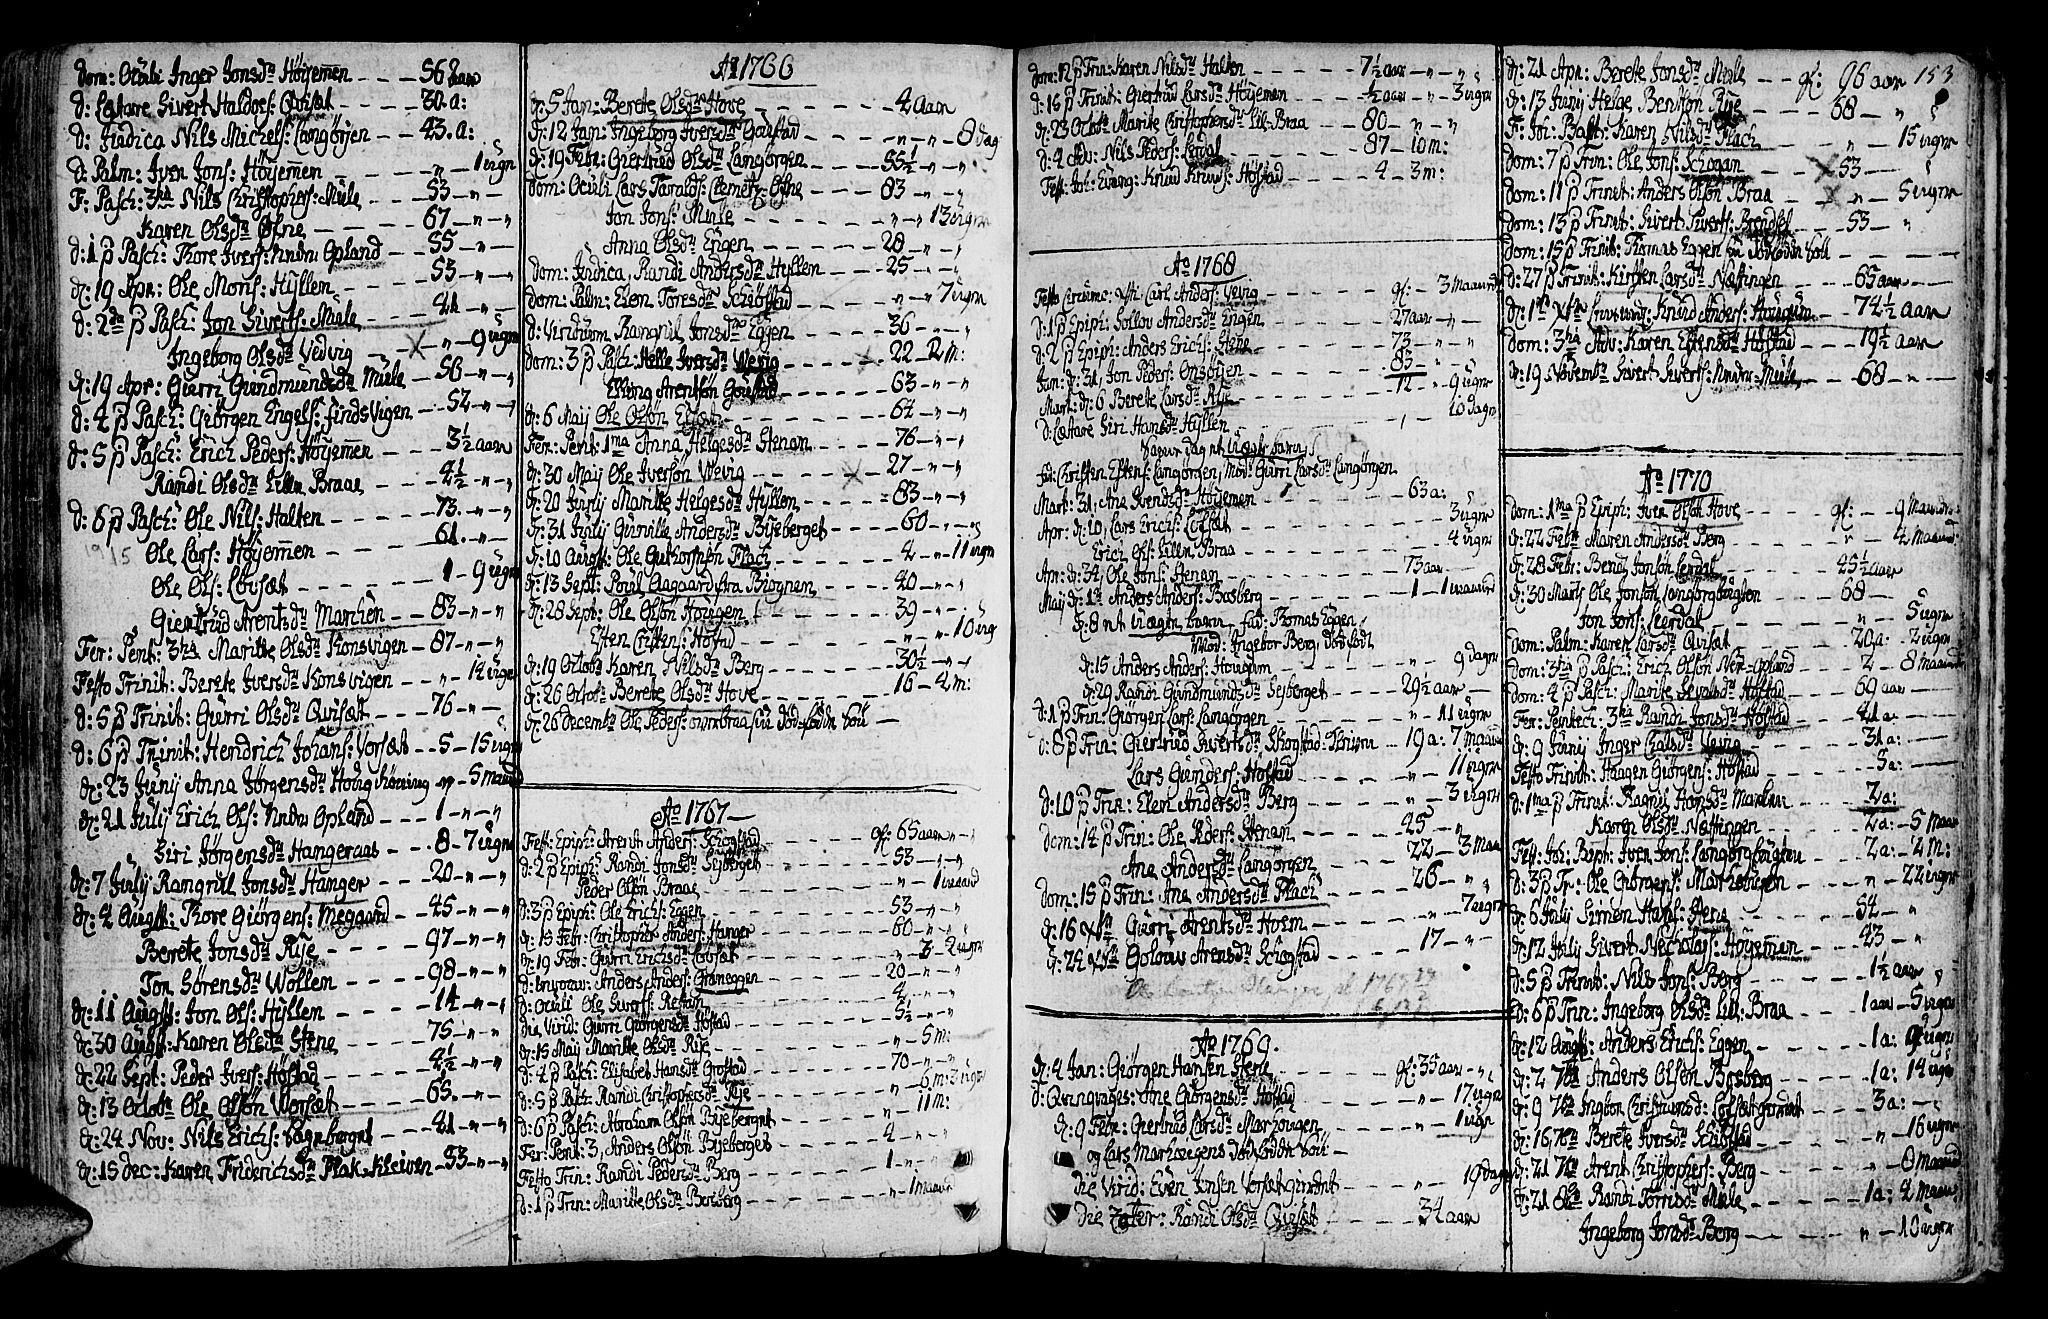 dom: Oculi Inger Jonsdr Höiyemen - - - 56 aar
d: Lætare Sivert Haldors: Qvisæt - - - 30. a:
d: Judica Nils Michels: Langörjen - - 43. a:
d: Palm: Iver Jons: Höiyemen - - - " - " 1 ugr
F: Pasch: 3tia Nils Christophers: Miele - - - 53 - - "
Karen Olsdr Ofne - - - 67 - " - "
d: 1 p Pasch: Tore Ivers: Nndr: Opland - - - 55 - " - "
d: 19 Apr: Ole Mons: Hyllen - - - 53 - " - "
d: 2 da p Pasch: Jon Siverts: Miele - - - 41 - " - "
Ingeborg Olsdr Vedvig - - " - 9 ugr
d: 19 Apr: Giurri Gundmundsdr Miele - 56 - " - "
d: 4 p Pasch: Giörgen Engels: Findsvigen - 52 - " - "
d: 5 p Pasch: Erich Peders: Höiyemen - - 3½ aar
Randi Olsdr Lilln Braae - - - 4½ - " - "
d: 6 p Pasch: Ole Nils: Halten - - - 73. - " - "
Ole Lars: Höiyemen - - - 61. - " - "
Ole Ols: Lövsæt - - - 1 - 9 ugr
Giertrud Arentsdr Marchen - - 83 - " - "
Fer: Pent: 3tia Maritte Olsdr Konsvigen - 87 - " - "
Festo Trinit: Berete Iversdr Konsvigen - - " - 14 ugr
d: 5 p Trinit: Giurri Olsdr Qvisæt - - - 76 - " -
d: 6 p Trinit: Hendrich Johans: Vorsæt - - 5 - 15 ugr
d: 23 Junij Anna Jörgensdr - " - 5 maand
d: 21 Julij Erich Ols: Nndr Opland - - - 1 - " - "
Siri Jörgensdr Hangeraas - - - 8 - 7 ugr
d: 7 Julij Rangnil Jonsdr Hanger - - - 20 - " - "
d: 4 Augst: Tore Giörgens: Megaard - - 45 - " - "
Berete Jonsdr Rije - - - 97 - " - "
Jon Sörensdr Wollem - - - 98 - " - "
d: 11 Augst: Jon Ols: Hyllen - - - 14 - " - "
d: 30 Augst: Karen Olsdr Stene - - - 75 - " - "
d: 22 Sept: Peder Ivers: Höstad - - - 4½ - " - "
d: 13 Octobr Ole Olsön Vorsæt - - - 65. - " - "
d: 24 Nov: Nils Erichs: - - 41 - " - "
d: 15 Dec: Karen Friderichsdr Flak Kleiven - 53 - " - "
Ao 1766
d: 5 Jan: Berete Olsdr Hove - - - 4 aar
d: 12 Jan: Ingeborg Iversdr Goustad - - - " - " - 8 dag
d: 19 Febr: Giertrud Olsdr Langörgen - - - 55½ - " - "
dom: Oculi Lars Taralds: Clemetz Ofne - 83 - - "
Jon Jons: Miele - - - " - " 13 ugr
Anna Olsdr Engen - - - 28 - " - "
dom: Judica, Randi Andersdr Hyllen - - 25 - - "
dom: Palm: Elen Toresdr Schiöstad - - - " - " - 7 ugr
d: Viridium Rangnil Jonsdr Eggen - - - 36 - " - "
dom: 3 p Pasch: Helle Iversdr Wevig - - - 22 - 2 m:
Elling Arentsön Goustad - - - 63 - " - "
d: 6 Maij Ole Olsön - - - 64 - " - "
Fer: Pent: 1ma Anna Helgesdr Stenan - - - 76 - " - "
d: 30 Maij Ole Iversön Wevig - - - 27 - " - "
d: 20 Junij Maritte Helgesdr Hyllen - - - 83 - " - "
d: 31 Julij Gunille Andersdr Byeberget - - - 60 - " - "
d: 10 Augst: Ole Guttormsön Flach - - - 4 - " 11 ugr
d: 13 Sept: Poul Aagaard fra Biugnen - - - 40 - " - "
d: 28 Sept: Ole Olsön Hougem - - - 39 - " - "
Esten - - " - " - 10 ugr
d: 19 Octobr Karen Nilsdr Berg - - - 30½ - " - "
d: 26 Octob: Berete Olsdr Hove - - - 16 - 4 m:
d: 26 Decembr Ole Peders:
Ao 1767
Fest: Epiph: Arent Anders: Schogstad - - gl: 65 aar - "
d: 2 p Epiph: Randi Jonsdr Byberget - - - 53 - " - "
Peder Olsön Braae - - - " - 1 maand
d: 3 p Epiph: Ole Erichs: Eggen - - - 53 - " - "
d: 15 Febr: Christopher Anders: Hanger - - - 60 - " - "
d: 19 Febr: Giurri Erichsdr Lövsæt - - - " 3 - 2 ugr
Anders Anders: Graneggen - - - 20 - " - "
d: Oculi Ole Siverts: Restad - - - 4 - " - "
die Virid: Giurri Giörgensdr Höstad - - - 5½ - " - "
d: 15 Maij Maritte Olsdr Rije - - - " - 5 m:
d: 4 p Pasch: Elisabet Hansdr Grostad - - - 70 - " - "
d: 5 p Pasch: Randi Christophersdr Rije - - - " - 6 m: 3 ugr
d: 6 p Pasch: Abraham Olsön Byeberget - - - " - 11 m:
Fer: Pent: 3, Anders Olsön Byeberget - - - 4 - " - "
Festo Trin: Randi Pedersdr Berg - - - 1 - " - "
d: 1 p Trin: Maritte Olsdr Bersberg - - - " - 1 maand
dom: 12 p Trin: Karen Nilsdr Halten - - - 7½ aar - " - "
d: 15 p Trinit: Giertrud Larsdr Höiyemen - - - ½ aar - " - 3 ugr
d: 23 Octobr Marite Christophersdr Lil-Braa - - 80 - " - "
d: 4 Adv: Nils Peders: Lerdal - - - 87 - 10 m:
Fest: Joh: Evang: Knud Knuds: Höstad - - - 4 - 3 m:
Ao 1768
Carl Anders: Vevig - - - gl: 3 maander
d: 1 p Epiph: Sollov Andersdr Engen - - - 27 aar - " -
d: 2 p Epiph: Anders Erichs: Stene - - - 73 - " - "
Jan: d: 31, Jon Peders: - - - 83 - " - "
Mart: d: 6 Berete Larsdr Rije - - - 12 - " 9 ugr
d: Lætare Siri Hansdr Hyllen - - - " - 10 dagr
Fad: Christen Estens: Langörgen, Mod: Giurri Larsdr Langörgen
Mart: 31, Ane Svendsdr Höiyemen - - - 63 a: "
Apr: d: 10, Lars Erichs: Lövsæt - - - 3 ugr
Erich Ols: Lilln Braa - - - 4 ugr
Apr: d: 24, Ole Jons: Stenan - - - 73 aar -
Maij d: 1ste Anders Anders: Bosberg - - - 1 - 1 maand
d: 8 nt Uægte barn, fad: Thomas Eggen,
Mod: Ingebor Berg, dödfödt
d: 15 Anders Anders: Hougum - - - " 9 dagr
d: 29 Randi Gundmundsdr Byberget - - - 29½ aar -
d: 1 p Trin: Giörgen Lars: Langörgen - - - " - 11 ugr
d: 8 p Trin: Giertrud Sivertsdr Schogstad - 19 a: 7 maan
Lars Gunders: Höstad - - - " - 11 ugr
d: 10 p Trin: Elen Andersdr Berg - - - " - 3 ugr
dom: 14 p Trin: Ole Peders: Stenan - - - 25 - "
Ane Andersdr Langörgen - - - 22 - 3 maa
dom: 15 p Trin: Ane Andersdr Flach - - - 26 - " "
d: 16 Xbr Giurri Arentsdr Hoem - - - " - 7 ugr
d: 22 Xbr Golouv Arensdr Schogstad - - - 17 - "
Ao 1769.
d: 4 Jan: Giörgen Hansen Stene - - - gl: 35 aar - "
d: Qvinqvages: Ane Giörgensdr Höstad - - - " - 17 ugr
d: 9 Febr: Giertrud Larsdr Marhougen - - - " - 1 ugr
og Lars Marhougens
die Virid: Even Jonsen - - - " - 19 dage
die Pater: Randi Olsdr Qvisæt - - - 34 aar
153
d: 21 Apr: Berete Jonsdr Miele - - gl: 96 aar
d: 13 Junij Helge Bentsön Rije - - - 68 - "
F: Joh: Babt: Karen Nilsdr Flach - - - " 15 ugr
dom: 7 p Trin: Ole Jons: Schogan - - 53 -
dom: 11 p Trinit: Anders Olsön Braa - - - " - 5 ugr
dom: 13 p Trinit: Sivert Siverts: Brendset - 53 - "
dom: 15 p Trinit: Thomas Eggen
d: 27 p Trinit: Kirsten Larsdr Nættingen - - - 65 aar
d: 1ste Xbr Knud Anders: Hougum - - 74½ aar
dom: 3tia Adv: Karen Estensdr Höstad - - 19½ aar
d: 19 Novembr Sivert Siverts: Nndr Miele - - 68 - "
Ao 1770
dom: 1ma p Epiph: Iver Olsön Hove - - - gl: 9 maander
d: 22 Febr Maren Andersdr Berg - - - " 4 maander
d: 28 Febr: Bendt Jonsön Lerdal - - - 45½ aar
d: 30 Martj Ole Jonsön - - 68 - "
Jon Jons: Leerdal - - - " - 5 ugr
dom: Palm: Karen Larsdr Qvisæt - - - 20 a: 2 ugr
dom: 3tia p Pasch: Erich Olsön Ner-Opland - - - 2 - 8 maand
dom: 4 p Pasch: Marite Höstad - - - 69 aar
Fer: Pentec: 3tia Randi Jonsdr Höstad - - - 41 a:
d: 9 Junij Inger Vevig - - - 31 a:
Festo Trinit: Haagen Giörgens: Höstad - - - 3 a: -
d: 1ma p Trinit: Ragnil Hansdr - - - 2 a:
Karen Olsdr Nættingen - - - 2 a: 5 maan
Fest: Joh: Bapt: Iver Jons: - - - 2 a: 4 m:
d: 3 p Tr: Ole Giörgens: Marhougen - - - " 22 ugr
d: 6 Julij Simen Hans: Stene - - - 54 - "
d: 12 Julij Sivert Necholays: Höiyemen - - - 43 - "
d: 5 p Trinit: Nils Jons: Berg - - - 1½ aar
d: 6 p Trin: Ingeborg Olsdr Lill: Braa - - - 1 aar - 5 ugr
d: 12 Augst: Anders Erichs: Eggen - - - 1 a: 9 ugr
d: 2 7br Anders Olsön Bosberg - - - 1 a: 14 ugr
d: 9 7br - - - 3 a: - "
d: 16, 7br Berete Iversdr Schiöstad - - - " 16 ugr
d: 21 7br Arent Christophers: Berg - - - 8 maand
d: 21 8br Randi Miele - - - 1 a: 4 maan
Ingeborg Jonsdr Berg - - - " - 10 ugr